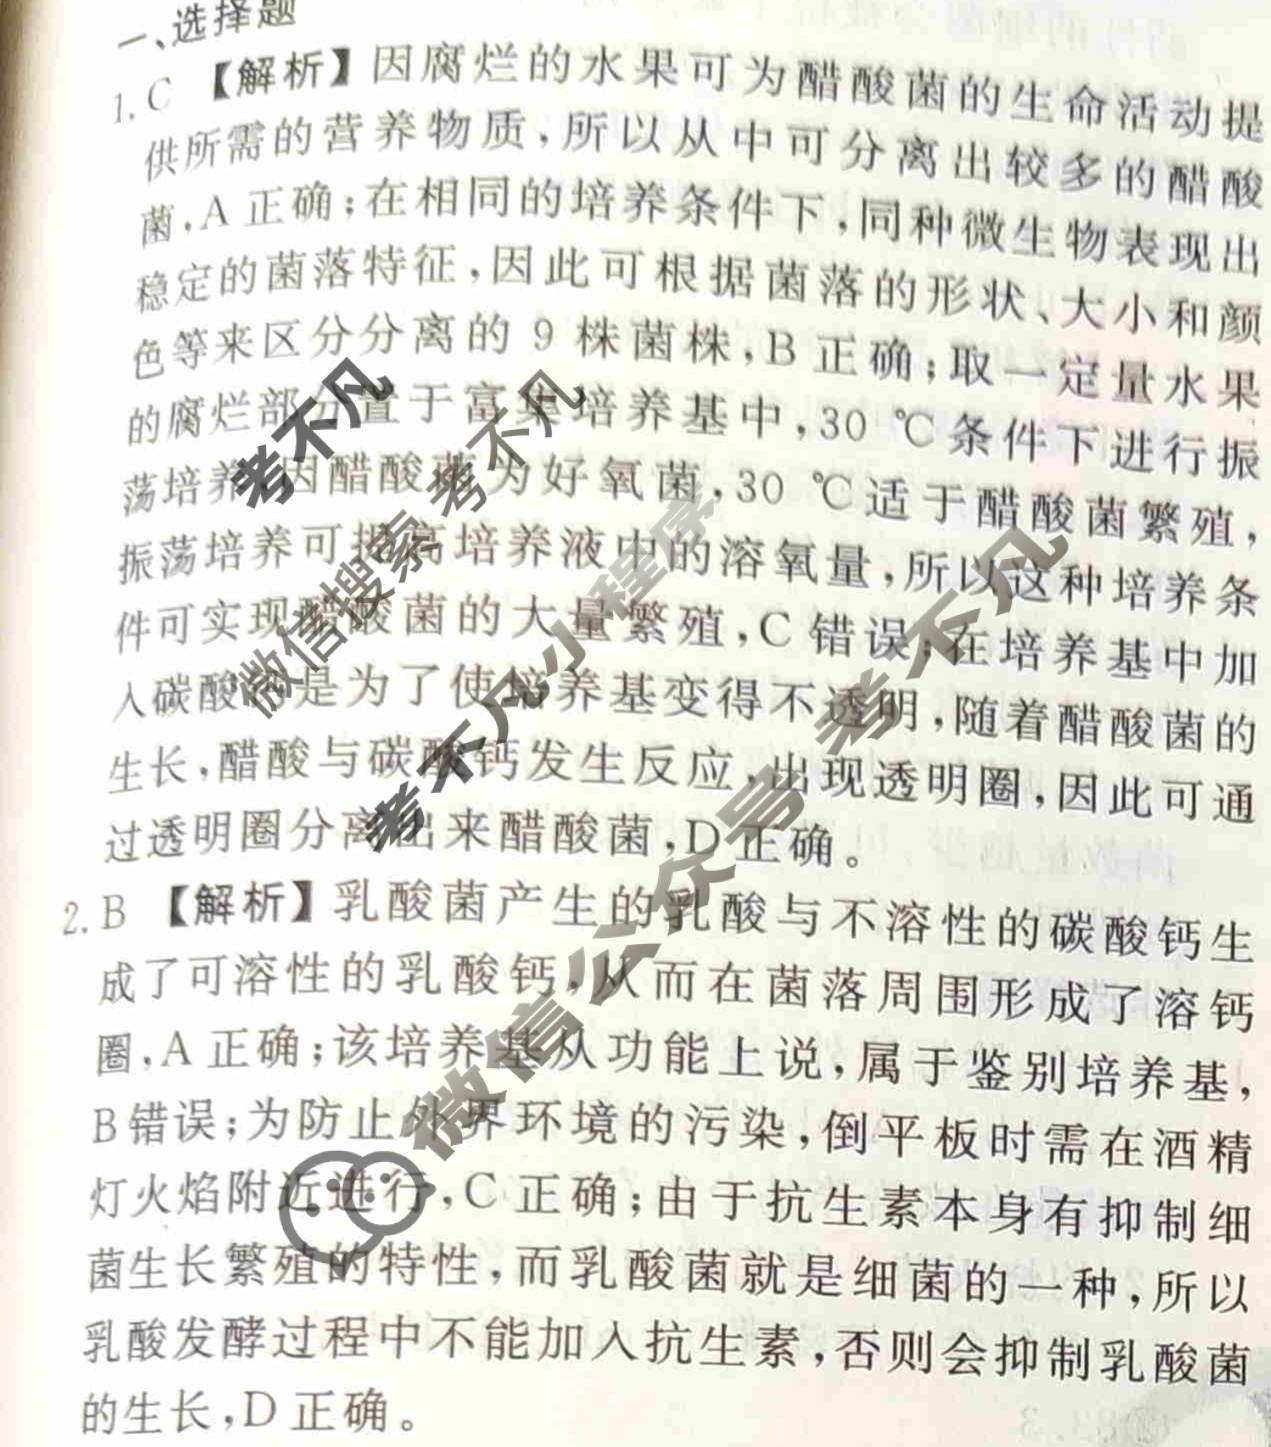 一、选择题
1. C 【解析】因腐烂的水果可为醋酸菌的生命活动提
供所需的营养物质,所以从中可分离出较多的醋酸
菌,A 正确;在相同的培养条件下,同种微生物表现出
稳定的菌落特征,因此可根据菌落的形状、大小和颜
色等来区分分离的 9 株菌株,B 正确;取一定量水果
的腐烂部分置于富集培养基中,30 ℃条件下进行振
荡培养,因醋酸菌为好氧菌,30 ℃适于醋酸菌繁殖,
振荡培养可提高培养液中的溶氧量,所以这种培养条
件可实现醋酸菌的大量繁殖,C 错误;在培养基中加
入碳酸钙是为了使培养基变得不透明,随着醋酸菌的
生长,醋酸与碳酸钙发生反应,出现透明圈,因此可通
过透明圈分离出来醋酸菌,D 正确。
2. B 【解析】乳酸菌产生的乳酸与不溶性的碳酸钙生
成了可溶性的乳酸钙,从而在菌落周围形成了溶钙
圈,A 正确;该培养基从功能上说,属于鉴别培养基,
B 错误;为防止外界环境的污染,倒平板时需在酒精
灯火焰附近进行,C 正确;由于抗生素本身有抑制细
菌生长繁殖的特性,而乳酸菌就是细菌的一种,所以
乳酸发酵过程中不能加入抗生素,否则会抑制乳酸菌
的生长,D 正确。
考不凡
微信搜索 考不凡
考不凡小程序
微信公众号 考不凡